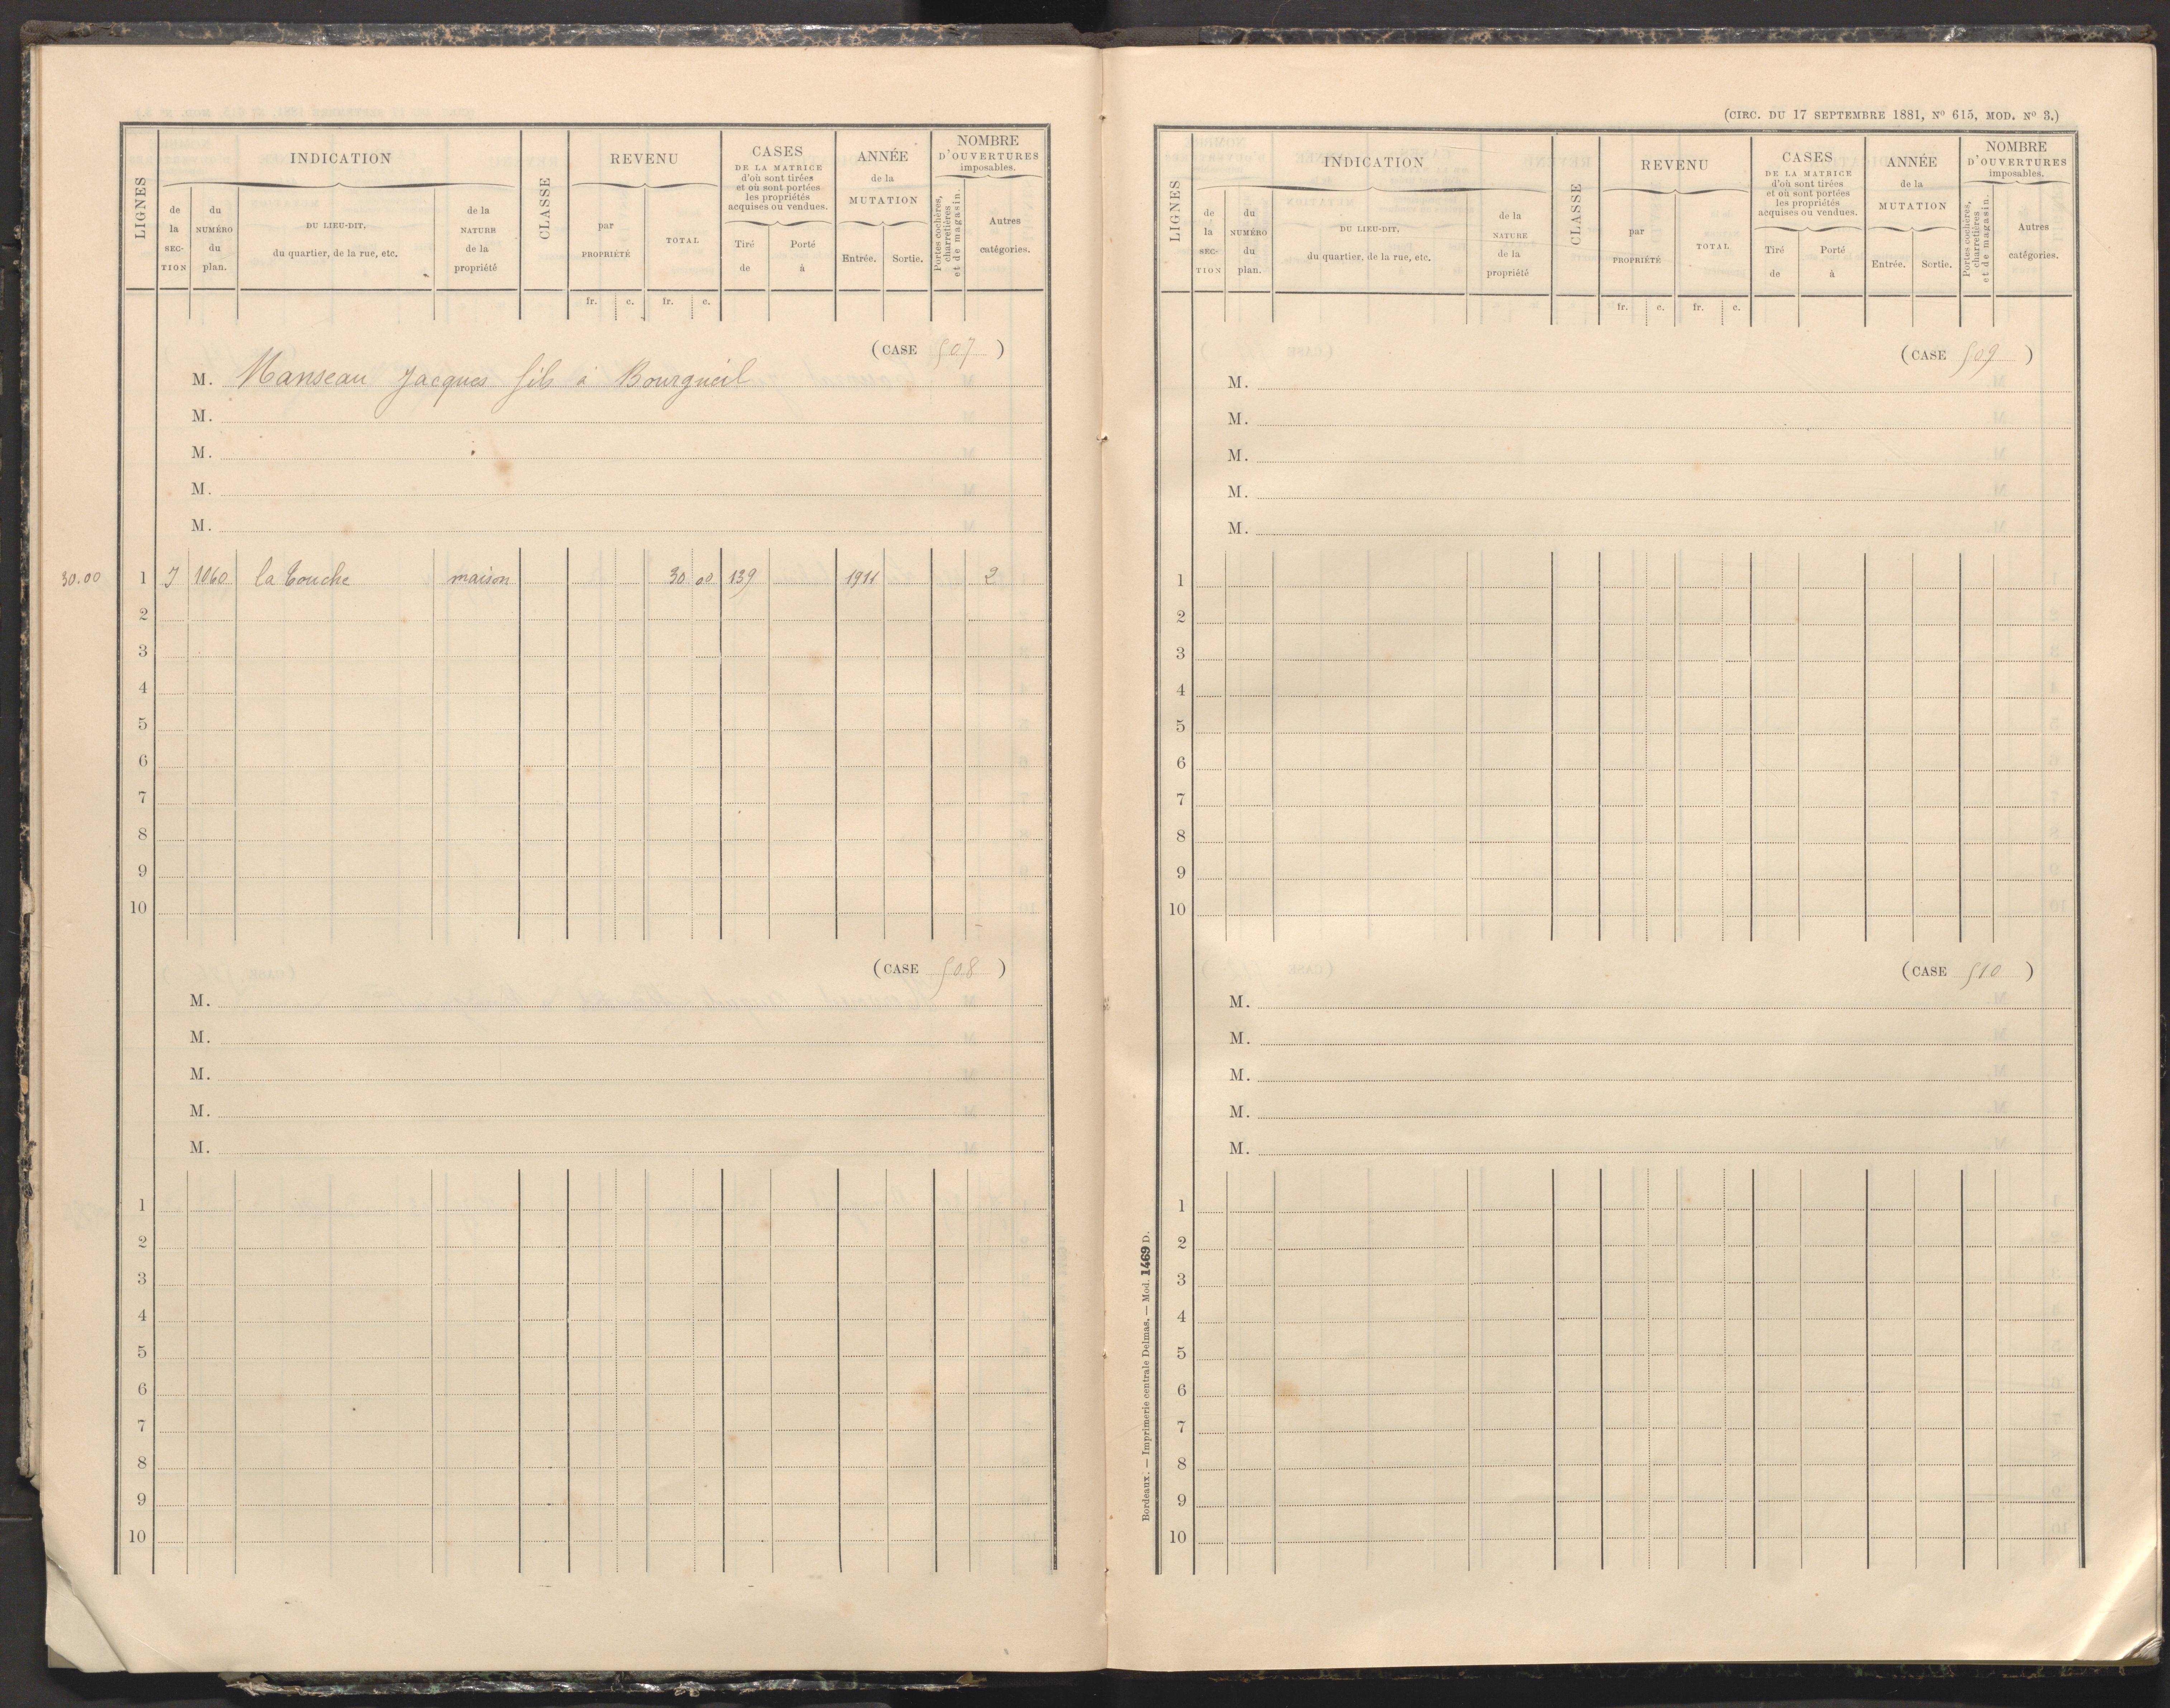 LIGNES
INDICATION
de la SECTION
du NUMÉRO du plan.
DU LIEU-DIT, du quartier, de la rue, etc.
de la NATURE de la propriété
CLASSE
REVENU
par PROPRIÉTÉ
TOTAL
CASES
DE LA MATRICE
d'où sont tirées
et où sont portées
les propriétés
acquises ou vendues.
Tiré de
Porté à
ANNÉE
de la
MUTATION
Entrée. Sortie.
NOMBRE
D'OUVERTURES
imposables.
Portes cochères, charretières et de magasin.
Autres catégories.
fr. c. fr. c.
(CASE 507)
M. Manseau Jacques fils à Bourgueil
M.
M.
M.
M.
30.00 1 J 1060 la Touche maison 30 00 139 1911 2
2
3
4
5
6
7
8
9
10
(CASE 508)
M.
M.
M.
M.
M.
1
2
3
4
5
6
7
8
9
10
(CIRC. DU 17 SEPTEMBRE 1881, Nº 615, MOD. Nº 3.)
LIGNES
INDICATION
de la SECTION
du NUMÉRO du plan.
DU LIEU-DIT, du quartier, de la rue, etc.
de la NATURE de la propriété
CLASSE
REVENU
par PROPRIÉTÉ
TOTAL
CASES
DE LA MATRICE
d'où sont tirées
et où sont portées
les propriétés
acquises ou vendues.
Tiré de
Porté à
ANNÉE
de la
MUTATION
Entrée. Sortie.
NOMBRE
D'OUVERTURES
imposables.
Portes cochères, charretières et de magasin.
Autres catégories.
fr. c. fr. c.
(CASE 509)
M.
M.
M.
M.
M.
1
2
3
4
5
6
7
8
9
10
(CASE 510)
M.
M.
M.
M.
M.
1
2
3
4
5
6
7
8
9
10
Bordeaux. — Imprimerie centrale Delmas. — Mod. 1469 D.